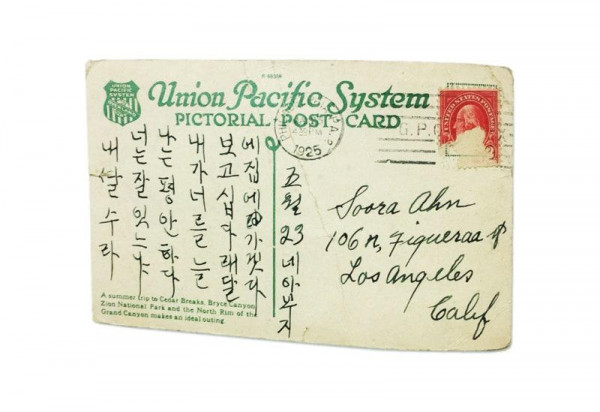 UNION PACIFIC SYSTEM
Union Pacific System
PICTORIAL POST CARD
1925
UNITED STATES POSTAGE
내 딸 수라
너는 잘 잇느냐
나는 평안하다
내가 너를 늘
보고 십다 래달
에 집에 가겟다
五월 23 네 아부지
Soora Ahn
106 N, Figueraa St
Los Angeles
Calif
A summer trip to Cedar Breaks, Bryce Canyon,
Zion National Park and the North Rim of the
Grand Canyon makes an ideal outing